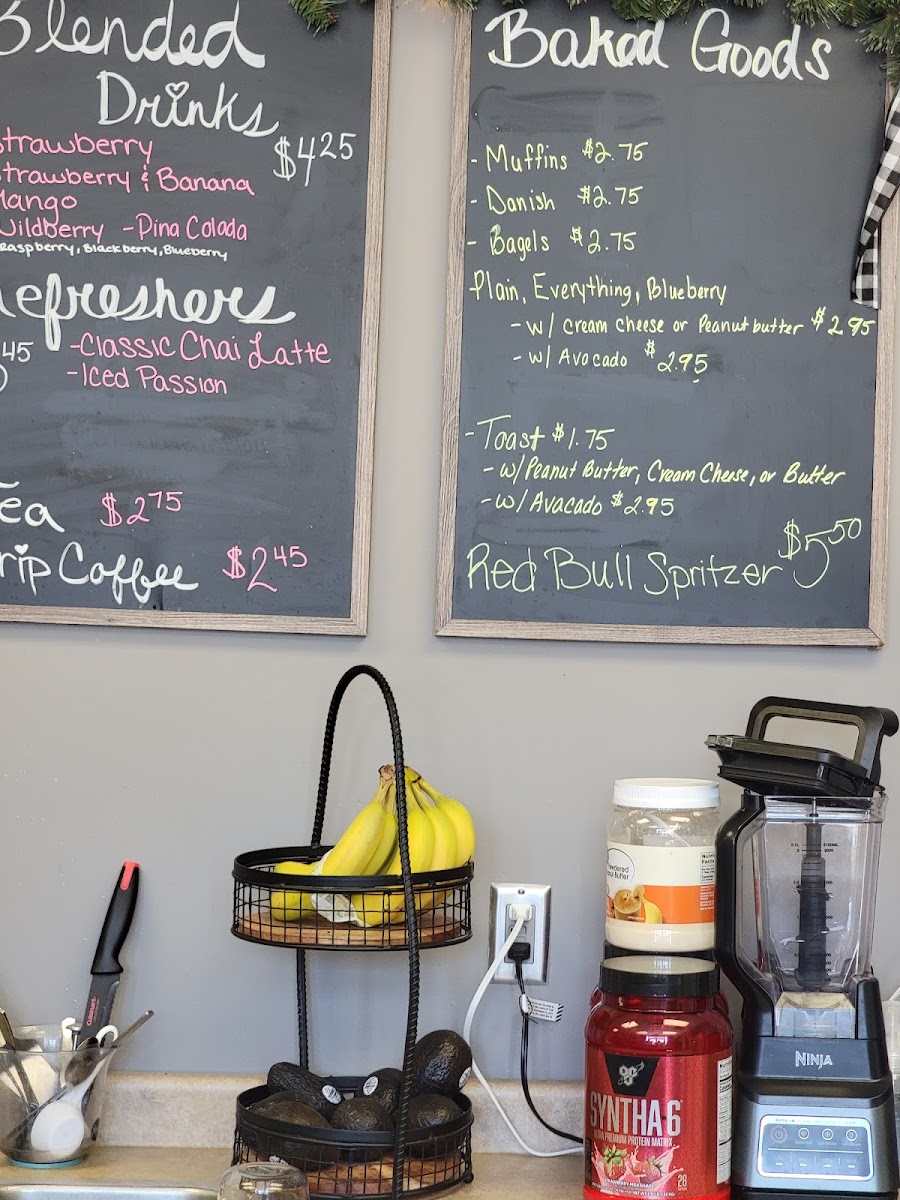 Blended
Drinks
$4.25
Strawberry
Strawberry & Banana
Mango
Wildberry - Pina Colada
Raspberry, Blackberry, Blueberry
Refreshers
45
- Classic Chai Latte
- Iced Passion
Tea $2.75
Drip Coffee $2.45
Baked Goods
- Muffins $2.75
- Danish $2.75
- Bagels $2.75
Plain, Everything, Blueberry
- w/ Cream Cheese or Peanut butter $2.95
- w/ Avocado $2.95
- Toast $1.75
- w/ Peanut Butter, Cream Cheese, or Butter
- w/ Avacado $2.95
Red Bull Spritzer $5.50
Powdered
Peanut Butter
Nutrition
Facts
SYNTHA-6
ULTRA PREMIUM PROTEIN MATRIX
STRAWBERRY MILKSHAKE
28
NINJA
Cuisinart